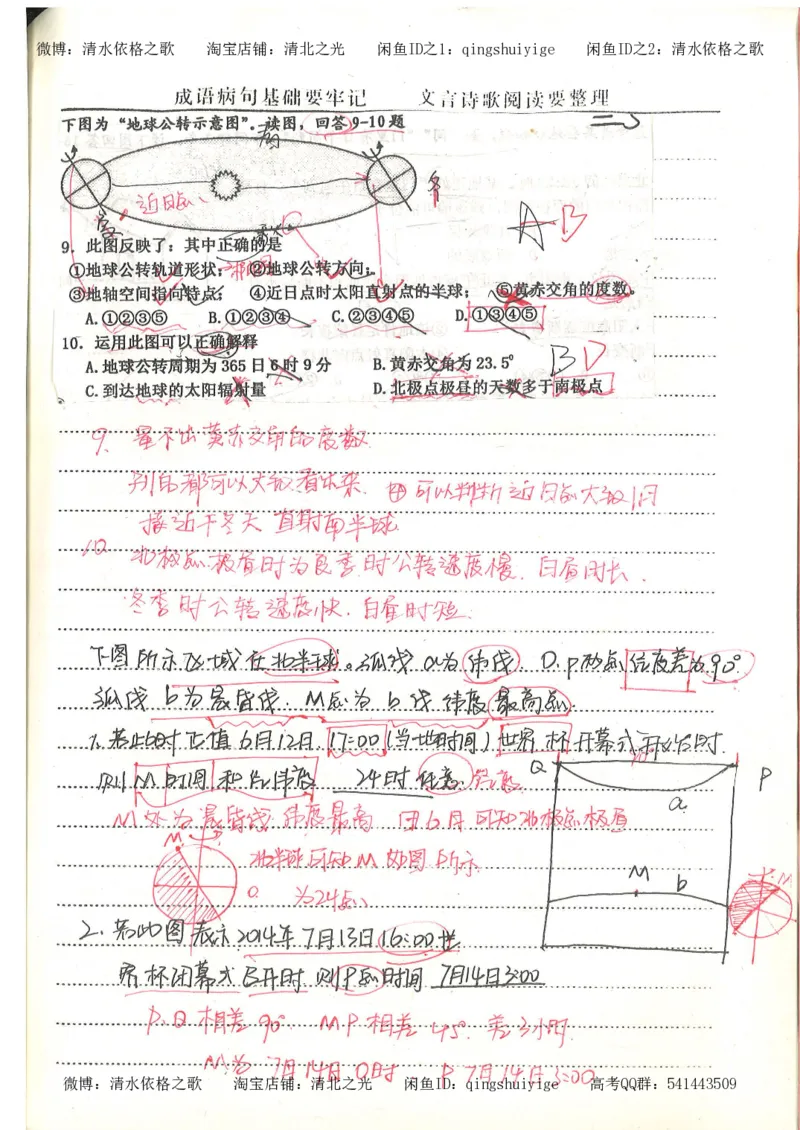 微博：清水依格之歌　淘宝店铺：清北之光　闲鱼ID之1：qingshuiyige　闲鱼ID之2：清水依格之歌
成语病句基础要牢记　文言诗歌阅读要整理
下图为“地球公转示意图”。读图，回答9-10题
春
近日点
冬
夏
秋
A B
9．此图反映了：其中正确的是
①地球公转轨道形状；　②地球公转方向；
椭圆
③地轴空间指向特点；　④近日点时太阳直射点的半球；　⑤黄赤交角的度数。
A.①②③⑤　B.①②③④　C.②③④⑤　D.①③④⑤
10．运用此图可以正确解释
A.地球公转周期为365日6时9分　B.黄赤交角为23.5°
B D
C.到达地球的太阳辐射量　D.北极点极昼的天数多于南极点
9. 量不出黄赤交角的度数
别的都可以大致看出来. ④可以判断近日点大致1月
接近于冬天 直射南半球
10. 北极点极昼时为夏季时公转速度慢. 白昼时长.
冬季时公转速度快. 白昼时短.
下图所示区域在北半球。弧线a为纬线. Q.P两点经度差为90°.
弧线b为晨昏线. M点为b线纬度最高点.
1.若此时正值6月12日.17:00(当地时间)世界杯开幕式开始时.
则M时间和所在纬度 24时 任意.
M处为晨昏线纬度最高 由6月可知北极点极昼
Q
P
a
M
北半球可知M如图所示
M
b
M
为24点
2.若此图表示2014年7月13日16:00世
界杯闭幕式召开时.则P点时间 7月14日3:00
P.Q相差90° M P相差45°. 差3小时.
M为7月14日0时 P 7月14日3:00
微博：清水依格之歌　淘宝店铺：清北之光　闲鱼ID：qingshuiyige　高考QQ群：541443509